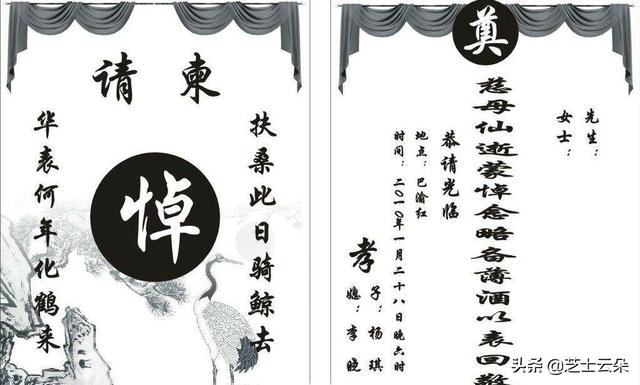 请柬
扶桑此日骑鲸去
悼
华表何年化鹤来
奠
先生：
女士：
慈母仙逝蒙悼念略备薄酒以表回敬
恭请光临
地点：巴渝红
时间：二〇一〇年一月二十八日晚六时
孝
子：杨琪
媳：李晓
头条 @芝士云朵